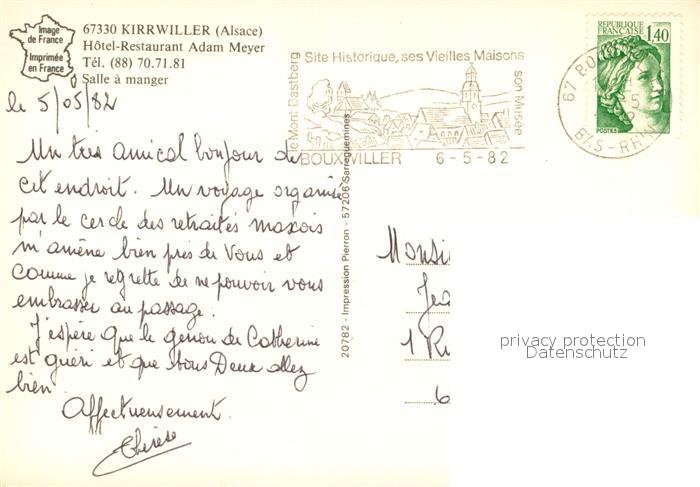 Image
de France
Imprimée
en France
67330 KIRRWILLER (Alsace)
Hôtel-Restaurant Adam Meyer
Tél. (88) 70.71.81
Salle à manger
le 5/05/82
Un très amical bonjour de
cet endroit. Un voyage organisé
par le cercle des retraités maxois
m'amène bien près de Vous et
comme je regrette de ne pouvoir vous
embrasser au passage.
J'espère que le genou de Catherine
est guéri et que tous Deux allez
bien.
Affectueusement.
Thérèse
20782 - Impression Pierron - 57206 Sarreguemines
le Mont Bastberg
Site Historique, ses Vieilles Maisons
son Musée
BOUXWILLER 6-5-82
REPUBLIQUE
FRANÇAISE
1,40
POSTES
67 BO
5
BAS-RHIN
Monsi
Jea
1 Ru
6
privacy protection
Datenschutz